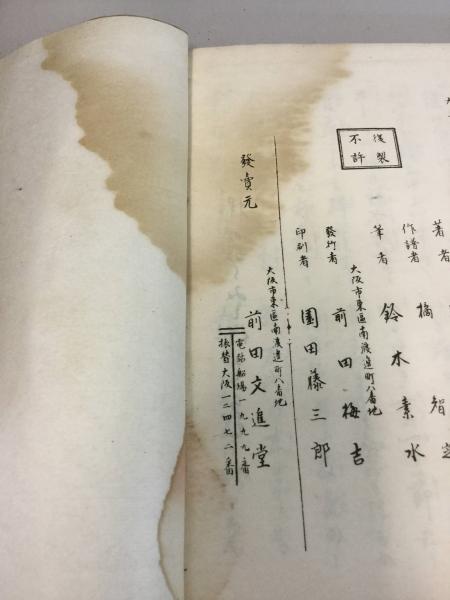 不許
復製
著者
橘
智
作譜者
筆者
鈴木素水
大阪市東區南渡邊町八番地
發行者
前田梅吉
印刷者
園田藤三郎
發賣元
大阪市東區南渡邊町八番地
前田文進堂
電話船場一九九九番
振替大阪一二四七二番